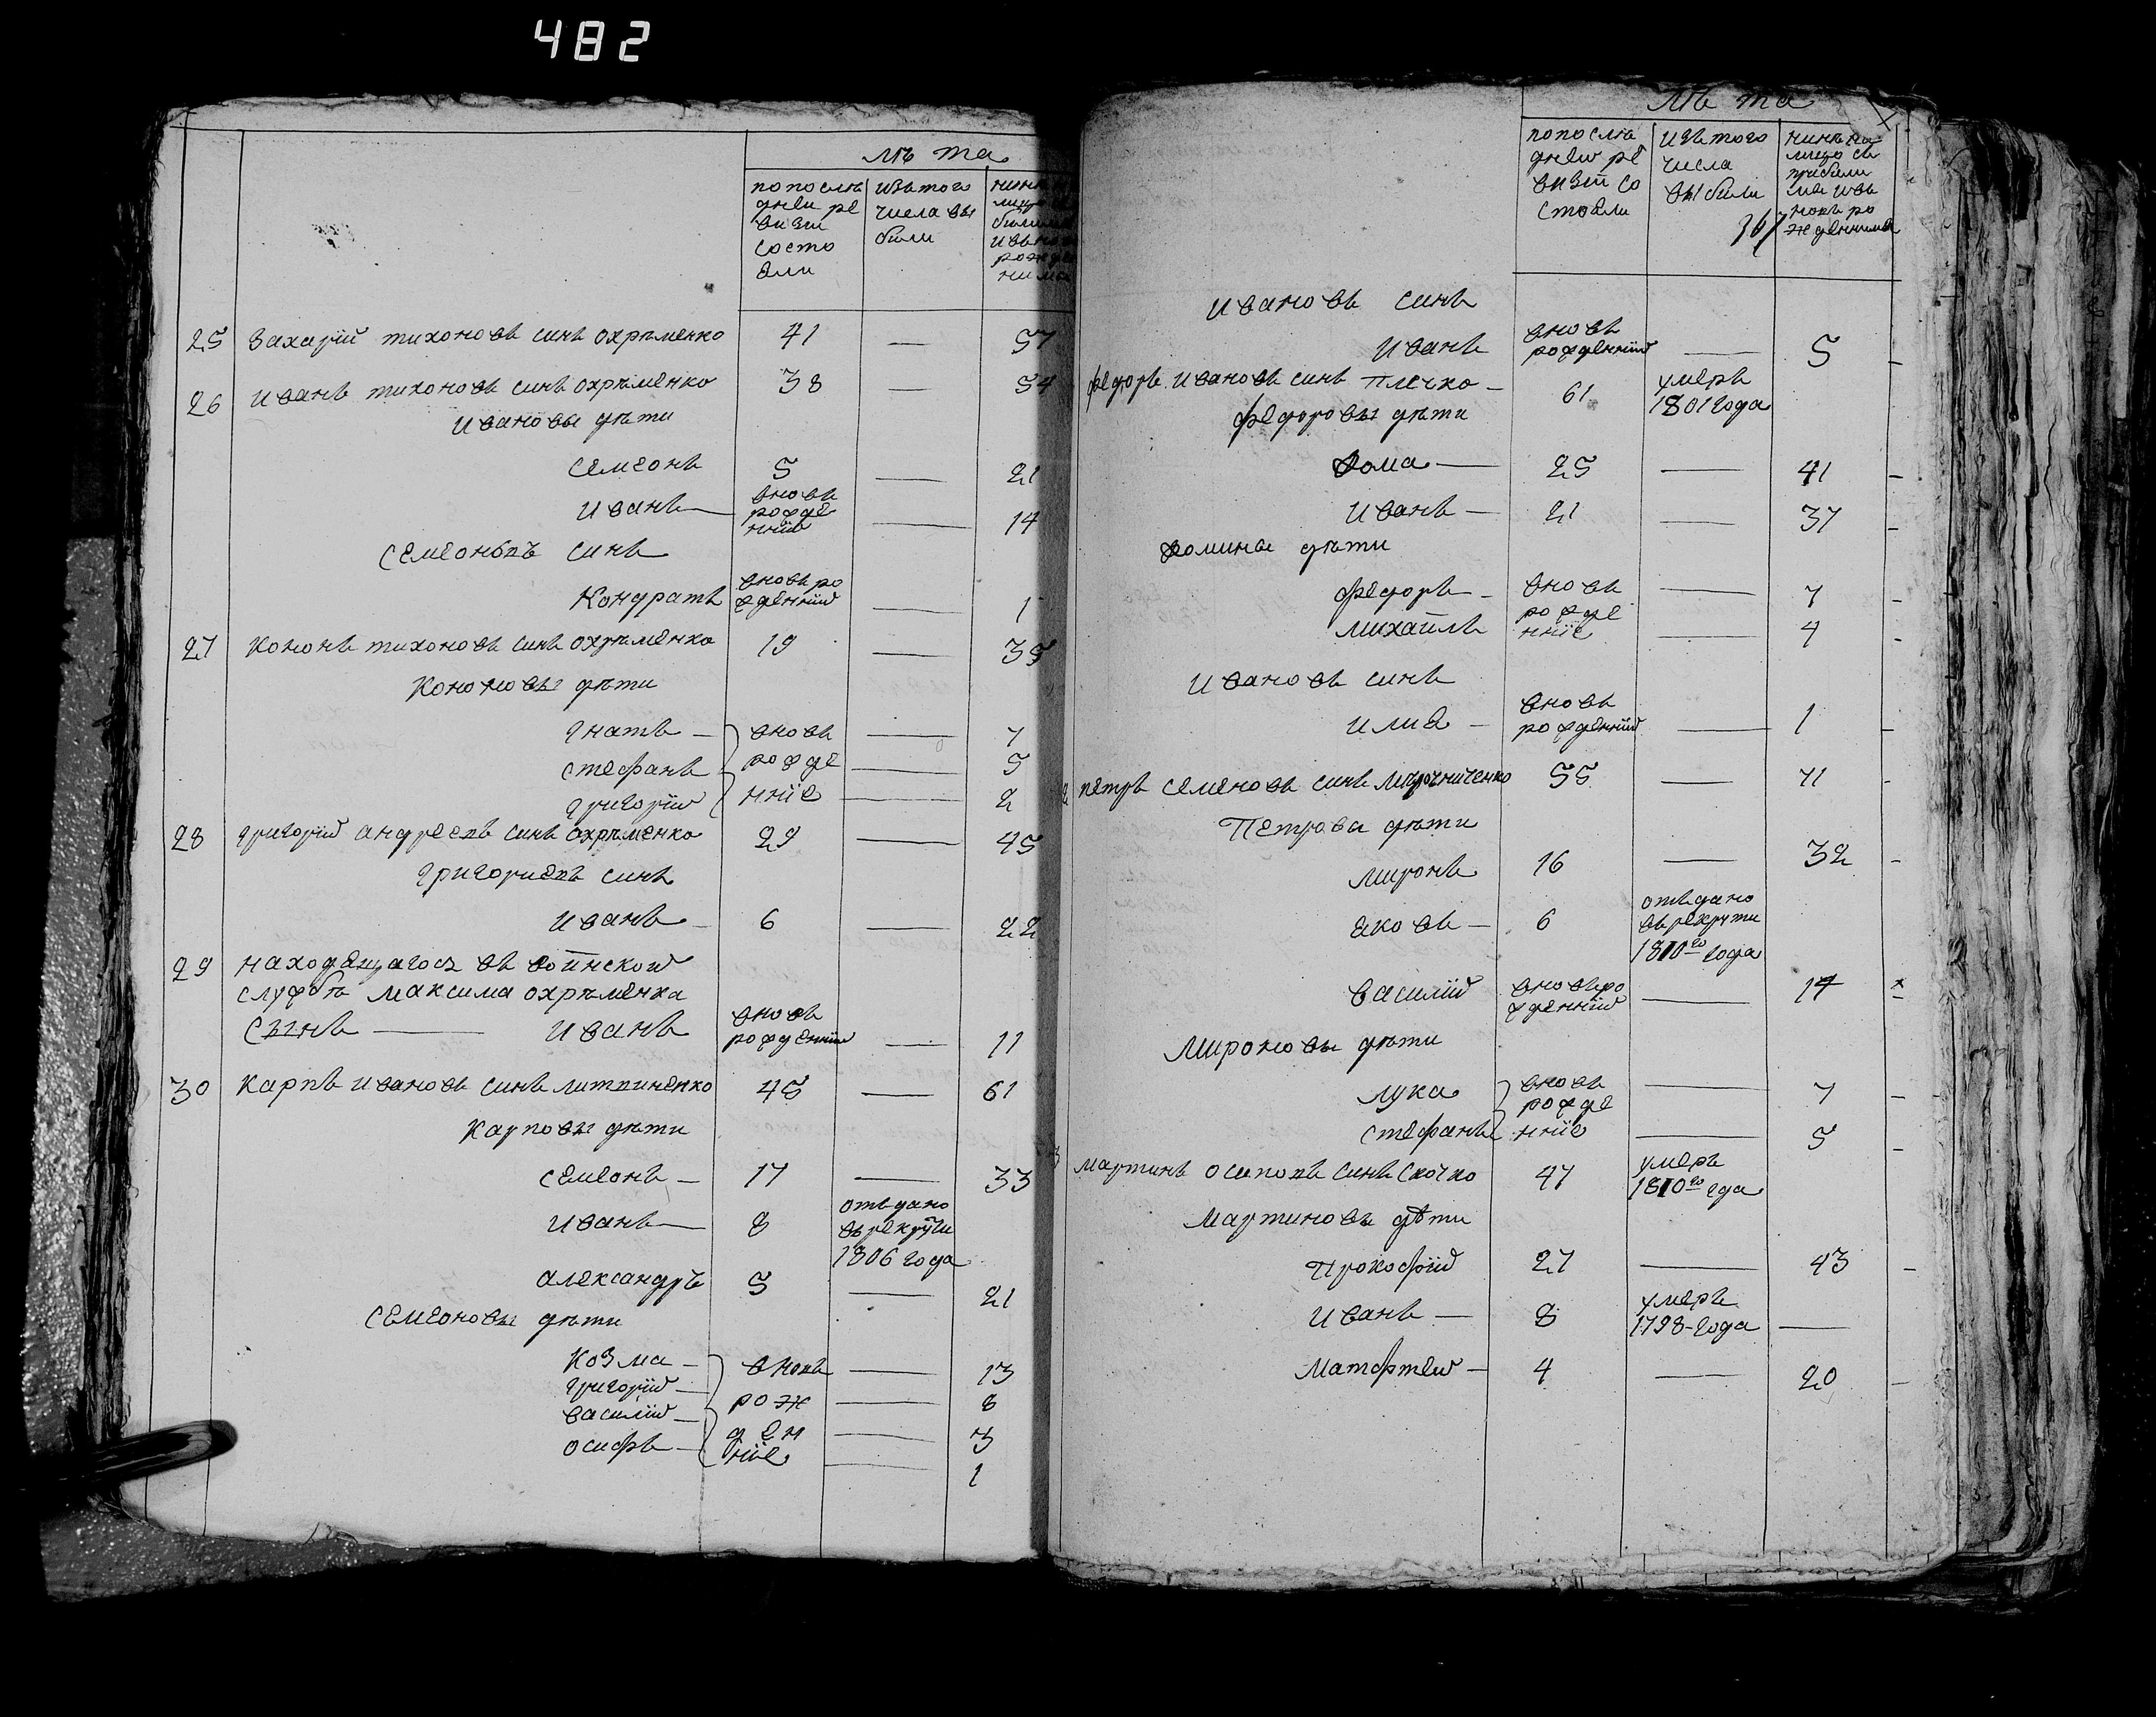 482
лѣ та
попослѣ изътого
дней ре числа вы
визіи были
состо
яли
25 Захарій тихоновъ синъ охрѣменко 41 — 57
26 иванъ тихоновъ синъ охрѣменко 38 — 54
ивановы дѣти
семеонъ 5 — 21
иванъ — вновь рожденній — 14
семеоновъ синъ
Кондратъ вновь рожденній — 1
27 кононъ тихоновъ синъ охрѣменко 19 — 35
Кононовы дѣти
гнатъ — вновь — 7
стефанъ рожде — 5
григорій нніе — 2
28 григорій андреевъ синъ охрѣменко 29 — 45
григориевъ синъ
иванъ — 6 — 22
29 находящагося въ воинской
службѣ максима охрѣменка
сынъ — иванъ вновь рожденній — 11
30 карпъ ивановъ синъ литвиненко 45 — 61
карповы дѣти
семеонъ — 17 — 33
иванъ — 8 отъдано въ рекруты 1806 года
александръ 5 — 21
семеоновы дѣти
козма — вновь — 13
григорій — рож — 8
василій — ден — 3
осифъ — ніе — 1
лѣ та
попослѣ изътого нинѣ на
дней ре числа лицо съ
визіи со выбыли прибылы
стояли ми извь
новь ро
жденными
361
ивановъ синъ
иванъ вновь рожденній — 5 —
федоръ ивановъ синъ плечко — 61 умеръ 1801 года
федоровы дѣти
фома — 25 — 41 —
иванъ — 21 — 37 —
фомины дѣти
федоръ — вновь — 7 —
михаилъ рожденніе — 4 —
ивановъ синъ
илия — вновь рожденній — 1 —
петръ семеновъ синъ 55 — 71 —
Петрови дѣти
миронъ 16 — 32 —
яковъ — 6 отъдано въ рекрути 1810го года
василій вновьрожденній — 14 ×
Мироновы дѣти
лука вновь рожде — 7 —
стефанъ нніе — 5 —
мартинъ осиповъ синъ скочко 47 умеръ 1810го года
Мартиновы дѣти
Прокофій 27 — 43 —
иванъ — 8 умеръ 1798-года —
Матфтей — 4 — 20 —